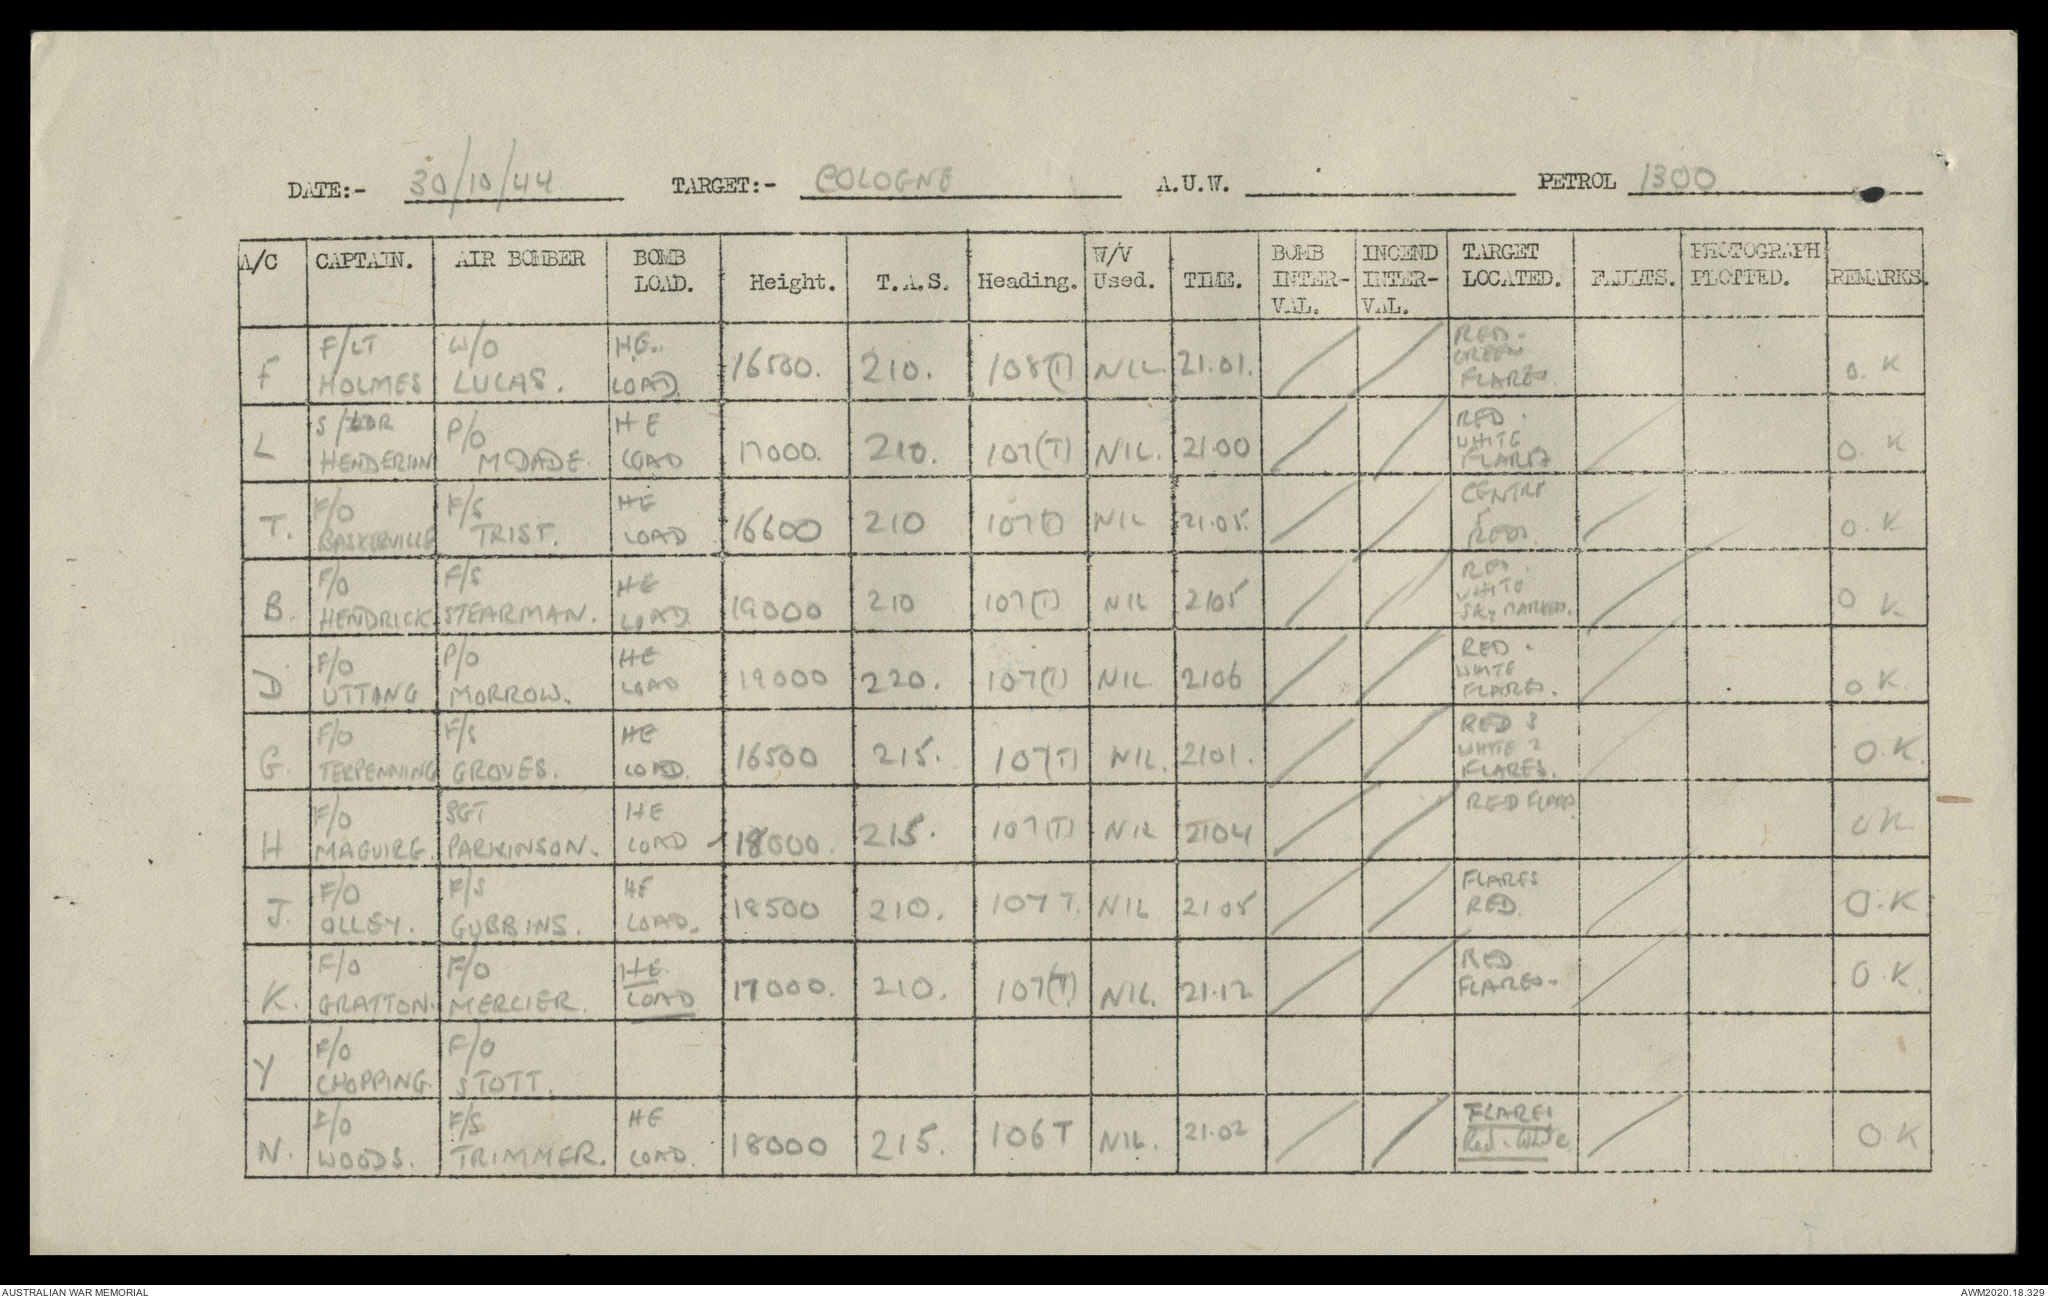 DATE:- 30/10/44 TARGET:- COLOGNE A.U.W. PETROL 1300
A/C CAPTAIN. AIR BOMBER BOMB LOAD. Height. T.A.S. Heading. W/V Used. TIME. BOMB INTER-VAL. INCEND INTER-VAL. TARGET LOCATED. FAULTS. PHOTOGRAPH PLOTTED. REMARKS.
F F/LT HOLMES W/O LUCAS. HE. LOAD. 16500. 210. 108(T) NIL 21.01. RED. GREEN FLARES. O. K
L S/LDR HENDERSON P/O McDADE. HE LOAD 17000. 210. 107(T) NIL. 21.00 RED. WHITE FLARES O. K
T. F/O BASKERVILLE F/S TRIST. HE LOAD 16600 210 107(T) NIL 21.05. CENTRE REDS. O. K
B. F/O HENDRICK F/S STEARMAN. HE LOAD 19000 210 107(T) NIL 2105 RED. WHITE SKY MARKERS. O K
D F/O UTTING P/O MORROW. HE LOAD 19000 220. 107(T) NIL. 2106 RED. WHITE FLARES. O K.
G. F/O TERPENNING F/S GROVES. HE LOAD. 16500 215. 107(T) NIL. 2101. RED & WHITE FLARES. O.K.
H F/O MAGUIRE. SGT PARKINSON. HE LOAD 18000. 215. 107(T) NIL 2104 RED FLARES. OK
J. F/O OLLEY. F/S GUBBINS. HE LOAD. 18500 210. 107 T. NIL 21.05 FLARES RED. O.K
K. F/O GRATTON. F/O MERCIER. HE LOAD 17000. 210. 107(T) NIL. 21.12 RED FLARES. O.K.
Y F/O CHOPPING. F/O STOTT.
N. F/O WOODS. F/S TRIMMER. HE LOAD. 18000 215. 106 T NIL. 21.02 FLARES Red. White O K
AUSTRALIAN WAR MEMORIAL AWM2020.18.329